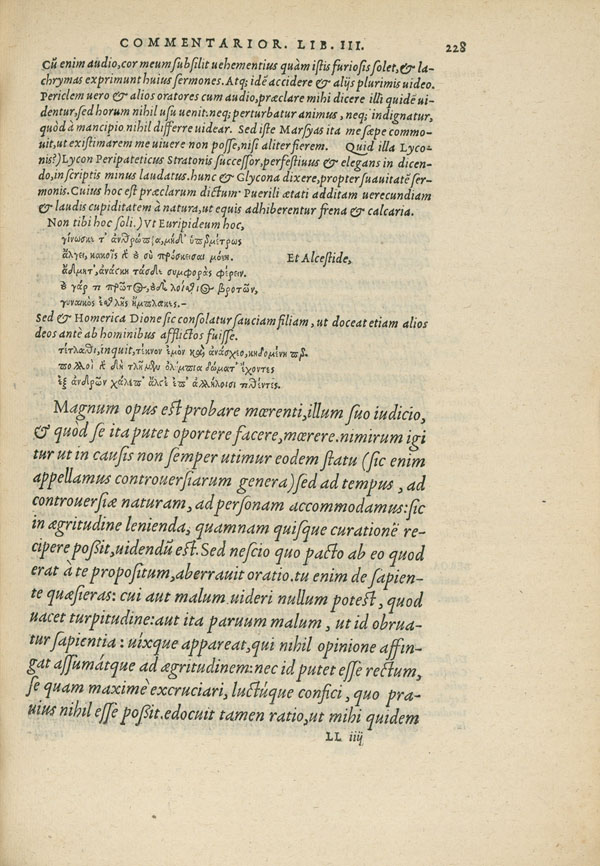 COMMENTARIOR. LIB. III. 228
Cū enim audio, cor meum subsilit uehementius quàm istis furiosis solet, & la-
chrymas exprimunt huius sermones. Atq; idē accidere & alijs plurimis uideo.
Periclem uero & alios oratores cum audio, præclare mihi dicere illi quidē ui-
dentur, sed horum nihil usu uenit: neq; perturbatur animus, neq; indignatur,
quòd à mancipio nihil differre uidear. Sed iste Marsyas ita me sæpe commo-
uit, ut existimarem me uiuere non posse, nisi aliter fierem. Quid illa Lyco-
nis?) Lycon Peripateticus Stratonis successor, perfestiuus & elegans in dicen-
do, in scriptis minus laudatus. hunc & Glycona dixere, propter suauitatē ser-
monis. Cuius hoc est præclarum dictum. Puerili ætati additam uerecundiam
& laudis cupiditatem à natura, ut equis adhiberentur frena & calcaria.
Non tibi hoc soli.) Vt Euripideum hoc,
γίνωσκε τ' ἀνθρώπεια, μηδ' ὑπερμέτρως
ἄλγει, κακοῖς ἢ οὐ σὺ πρόσκεισαι μόνη. Et Alcestide,
ἄδμητ', ἀνάγκη τάσδε συμφορὰς φέρειν.
οὐ γάρ τι πρῶτος, οὐδὲ λοίσθιος βροτῶν,
γυναικὸς ἐσθλῆς ἤμπλακες.–
Sed & Homerica Dione sic consolatur sauciam filiam, ut doceat etiam alios
deos antè ab hominibus afflictos fuisse.
τέτλαθι, inquit, τέκνον ἐμὸν καὶ ἀνάσχεο, κηδομένη περ.
πολλοὶ ἢ δὴ τλῆμεν ὀλύμπια δώματ' ἔχοντες
ἐξ ἀνδρῶν χάλεπ' ἄλγε ἐπ' ἀλλήλοισι τιθέντες.
Magnum opus est probare mœrenti, illum suo iudicio,
& quòd se ita putet oportere facere, mœrere. nimirum igi
tur ut in causis non semper utimur eodem statu (sic enim
appellamus controuersiarum genera) sed ad tempus, ad
controuersiæ naturam, ad personam accommodamus: sic
in ægritudine lenienda, quamnam quisque curationē re-
cipere possit, uidendū est. Sed nescio quo pacto ab eo quod
erat à te propositum, aberrauit oratio. tu enim de sapien-
te quæsieras: cui aut malum uideri nullum potest, quod
uacet turpitudine: aut ita paruum malum, ut id obrua-
tur sapientia: uíxque appareat, qui nihil opinione affin-
gat assumátque ad ægritudinem: nec id putet esse rectum,
se quam maximè excruciari, luctúque confici, quo pra-
uius nihil esse possit. edocuit tamen ratio, ut mihi quidem
LL iiij